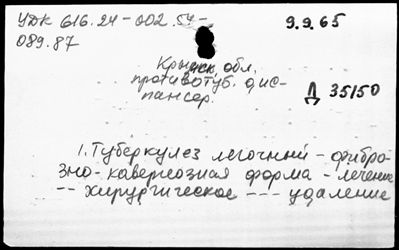 УДК 616.24-002.54-
089.87
9.9.65
Крымск. обл.
противотуб. дис-
пансер.
Д 35150
1. Туберкулез легочный - фибро-
зно-кавернозная форма - лечение
-- хирургическое --- удаление